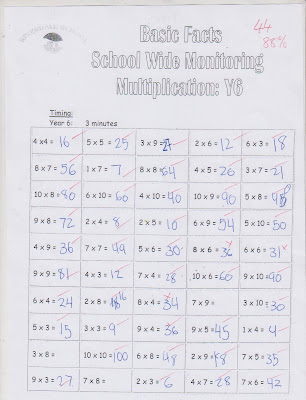 44
88%
Basic Facts
School Wide Monitoring
Multiplication: Y6
Timing:
Year 6: 3 minutes
4 x 4 = 16 5 x 5 = 25 3 x 9 = 27 2 x 6 = 12 6 x 3 = 18
8 x 7 = 56 1 x 7 = 7 8 x 8 = 64 4 x 5 = 20 3 x 7 = 21
10 x 8 = 80 6 x 10 = 60 4 x 10 = 40 10 x 9 = 90 5 x 8 =
9 x 8 = 72 2 x 4 = 8 2 x 5 = 10 6 x 9 = 54 5 x 10 = 50
4 x 9 = 36 7 x 7 = 49 5 x 6 = 30 8 x 6 = 36 6 x 6 = 31
9 x 9 = 81 4 x 3 = 12 7 x 4 = 28 10 x 6 = 60 9 x 10 = 90
6 x 4 = 24 2 x 8 = 16 8 x 4 = 34 7 x 9 = 3 x 10 = 30
5 x 3 = 15 3 x 3 = 9 9 x 4 = 36 9 x 5 = 45 1 x 4 = 4
3 x 8 = 10 x 10 = 100 6 x 8 = 48 2 x 9 = 18 7 x 5 = 35
9 x 3 = 27 7 x 8 = 2 x 3 = 6 4 x 7 = 28 7 x 6 = 42